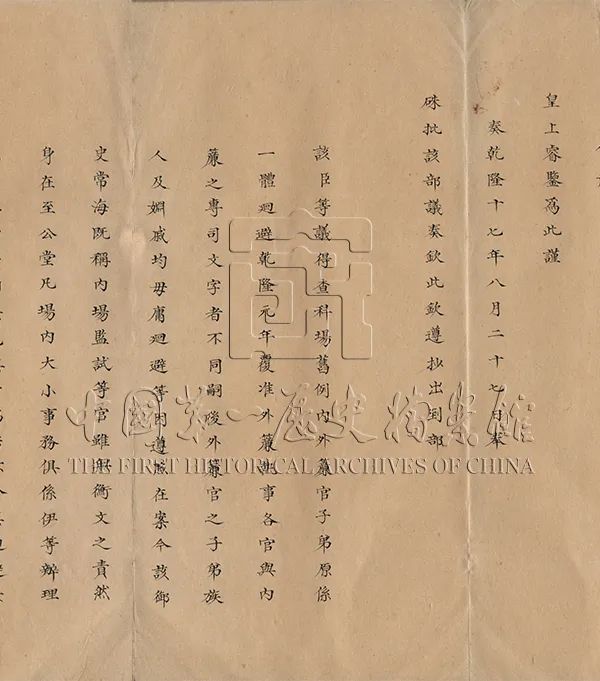 皇上睿鑒爲此謹
奏乾隆十七年八月二十七日奉
硃批該部議奏欽此欽遵抄出到部
該臣等議得查科場舊例內外簾官子弟原係
一體廻避乾隆元年覆准外簾執事各官與內
簾之專司文字者不同嗣後外簾官之子弟族
人及姻戚均毋庸廻避等因遵照在案今該御
史常海既稱內場監試等官雖無衡文之責然
身在至公堂凡場內大小事務俱係伊等辦理
中國第一歷史檔案館
THE FIRST HISTORICAL ARCHIVES OF CHINA